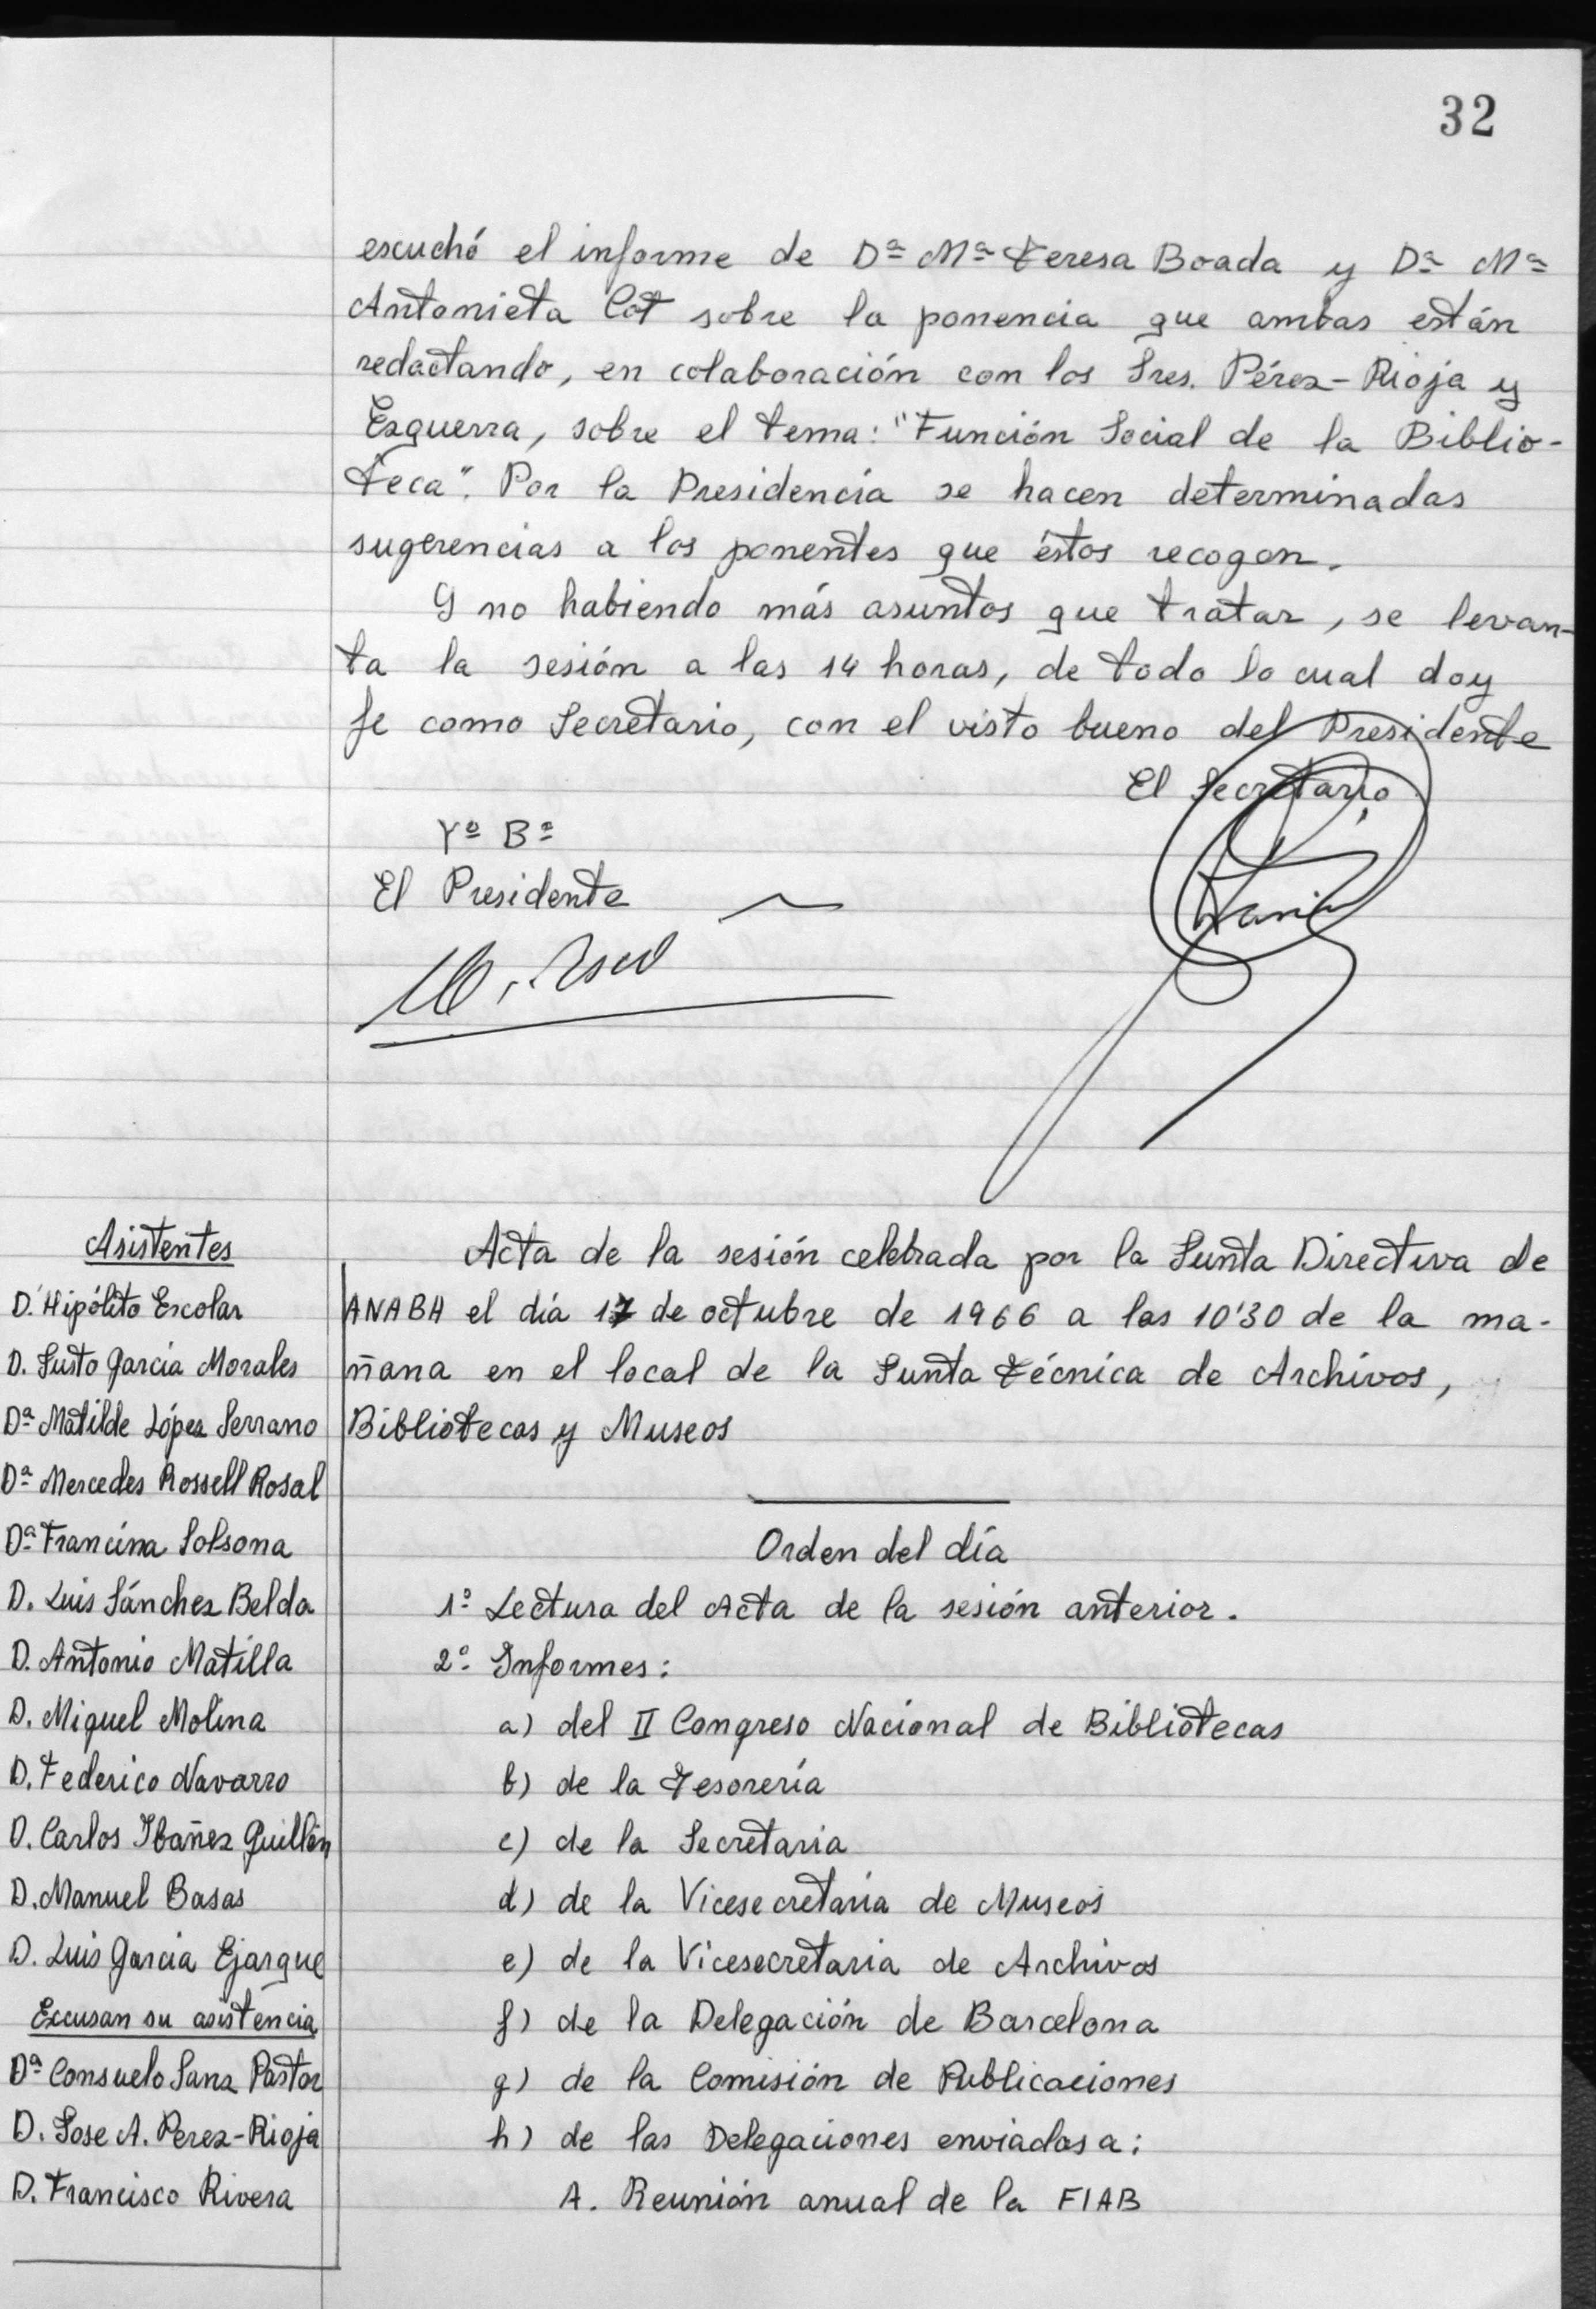 32
escuchó el informe de Dª Mª Teresa Boada y Dª Mª
Antonieta Cot sobre la ponencia que ambas están
redactando, en colaboración con los Sres. Pérez-Rioja y
Ezquerra, sobre el tema: "Función Social de la Biblio-
teca". Por la Presidencia se hacen determinadas
sugerencias a los ponentes que éstos recogen.
Y no habiendo más asuntos que tratar, se levan-
ta la sesión a las 14 horas, de todo lo cual doy
fe como Secretario, con el visto bueno del Presidente
El Secretario
Vº Bº
El Presidente
Asistentes
D. Hipólito Escolar
D. Justo García Morales
Dª Matilde López Serrano
Dª Mercedes Rossell Rosal
Dª Francina Solsona
D. Luis Sánchez Belda
D. Antonio Matilla
D. Miguel Molina
D. Federico Navarro
D. Carlos Ibañez Guillén
D. Manuel Basas
D. Luis García Ejarque
Excusan su asistencia
Dª Consuelo Sanz Pastor
D. Jose A. Perez-Rioja
D. Francisco Rivera
Acta de la sesión celebrada por la Junta Directiva de
ANABA el día 17 de octubre de 1966 a las 10'30 de la ma-
ñana en el local de la Junta Técnica de Archivos,
Bibliotecas y Museos
Orden del día
1º Lectura del Acta de la sesión anterior.
2º Informes:
a) del II Congreso Nacional de Bibliotecas
b) de la Tesorería
c) de la Secretaria
d) de la Vicesecretaría de Museos
e) de la Vicesecretaria de Archivos
f) de la Delegación de Barcelona
g) de la Comisión de Publicaciones
h) de las Delegaciones enviadas a:
A. Reunión anual de la FIAB